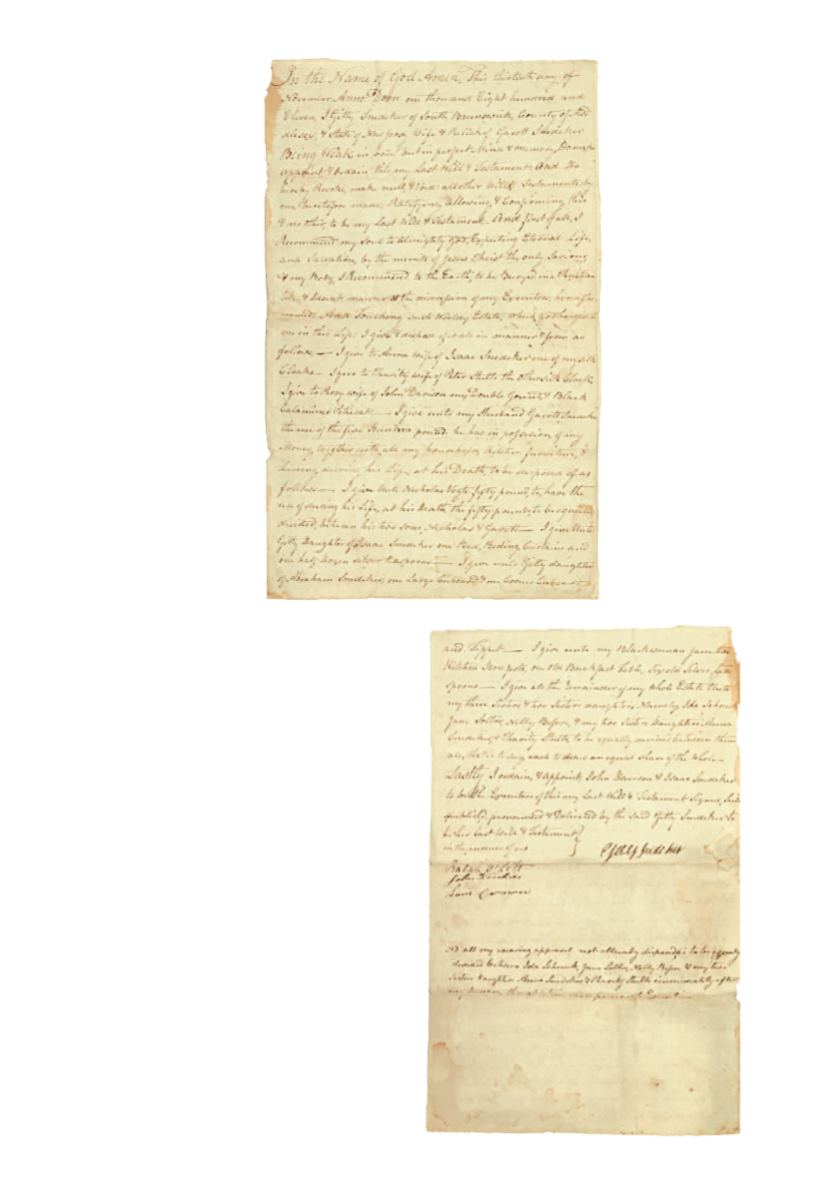 In the Name of God Amen, This thirteth day of
November Anno Dom one thousand Eight hundred and
Eleven, I Gitty Snedeker of South Brunswick, County of Mid
dlesex, & State of New Wife & Relick of Garott Snedeker
Being Weak in but in perfect Mind & memory, Do make
appoint & ordain this my Last Will & Testament And Do
hereby Revoke, make null & Void all other Wills Testaments by
me heretofore made, Ratifying, allowing, & Confirming this
& no other, to be my Last Will & Testament And first of all, I
Recommend my Soul to Almighty God, Expecting Eternal Life,
and Salvation, by the merits of Jesus Christ the only Saviour
& my Body, I Recommend to the Earth, to be Buryed in a Christian
like & Decent manner at the discression of my Executors, hereafter
named And Touching such Worldly Estate, which
me in this Life; I give & dispose of it all in manner & form as
follows — I give to Anna wife of Isaac Snedeker one of my silk
Cloaks — I give to Charity wife of Peter Stults the Other Silk Cloak
I give to Rosy wife of John Davison my Double Gound, & Black
Calamined Peticoat — I give unto my Husband Garott Snedeker
the use of the five Hundred pound he has in possesion of my
Money, together with all my household & kitchen furniture, &
during his Life, at his Death, to be disposed of as
follows — I give Unto Nicholas fifty pound, to have the
use of during his Life, at his Death the fifty pounds to be equally
divided, between his two sons, Nicholas & Garott — I give Unto
Gitty Daughter of Isaac Snedeker one Bed, Beding, Curtains and
one half dozen silver teaspoons — I give unto Gitty daughter
of Abraham Snedeker, one Large Cubbard & one
and Tippet — I give unto my Blackwoman Jane two
Kitchen Iron pots, one old Breakfast table, Six old Silver tea
spoons — I give all the Remainder of my whole Estate Unto
my three Sisters & two Sisters daughters Namely Ida Schenck
Jane Nelly & my two Sister Daughters Anna
Snedeker, & Charity Stults to be equally divided between them
all, that is to say each to draw an equal share of the whole —
Lastly I ordain, & appoint, John Davison & Isaac Snedeker
to be the Executors of this my Last Will & Testament Signed, Seald
publishd, pronounced & Delivered by the said Gitty Snedeker to
be her Last Will & Testament
in the presence of us } Gitty Snedeker
Ralph
John
Lewis
all my wearing apparel not allready disposed of to be equaly
devided between Ida Schenck, Jane Nelly & my two
Sister Daughters Anna Snedeker & Charity Stults immediately after
my